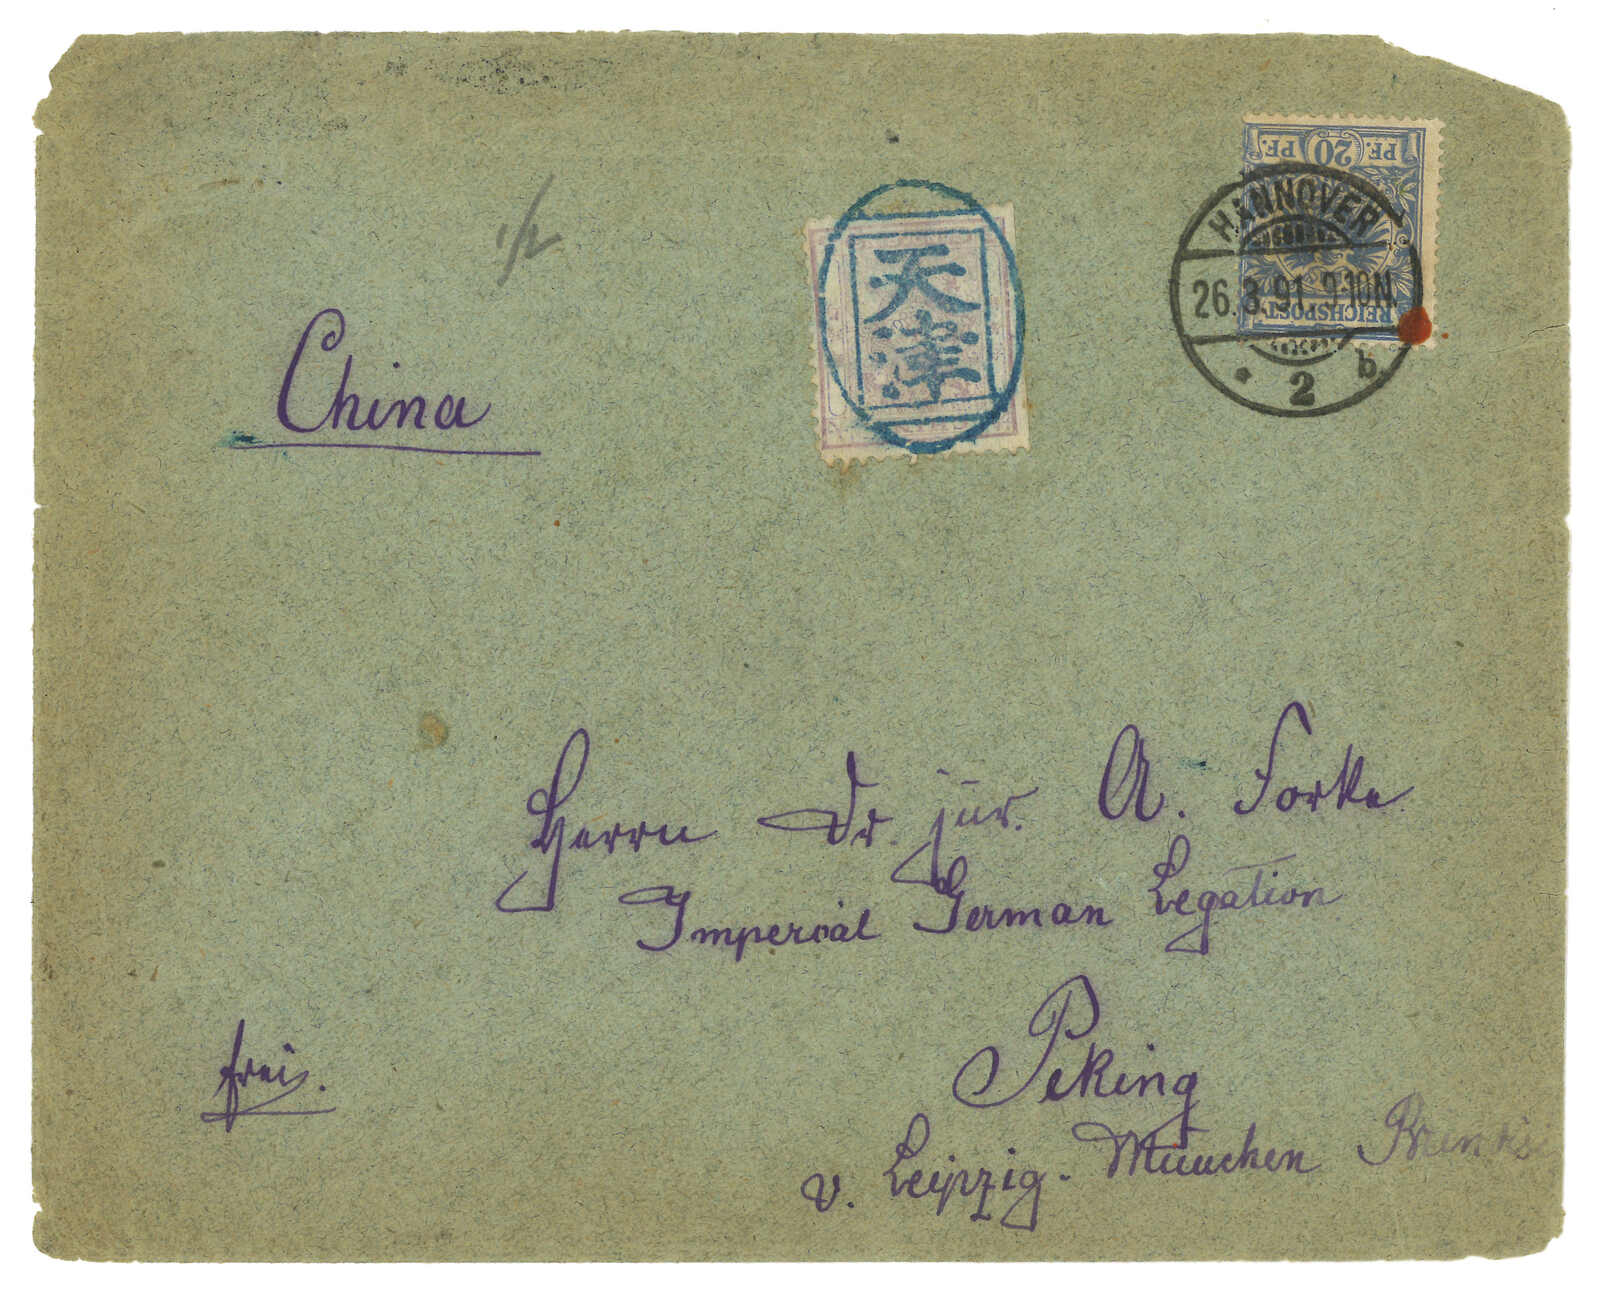 1/2
PF. 20 PF.
REICHSPOST
HANNOVER
26.3.91. 9-10N.
* 2 b.
天津
China
Herrn Dr. jur. A. Forke
Imperial German Legation
Peking
frei.
v. Leipzig-München